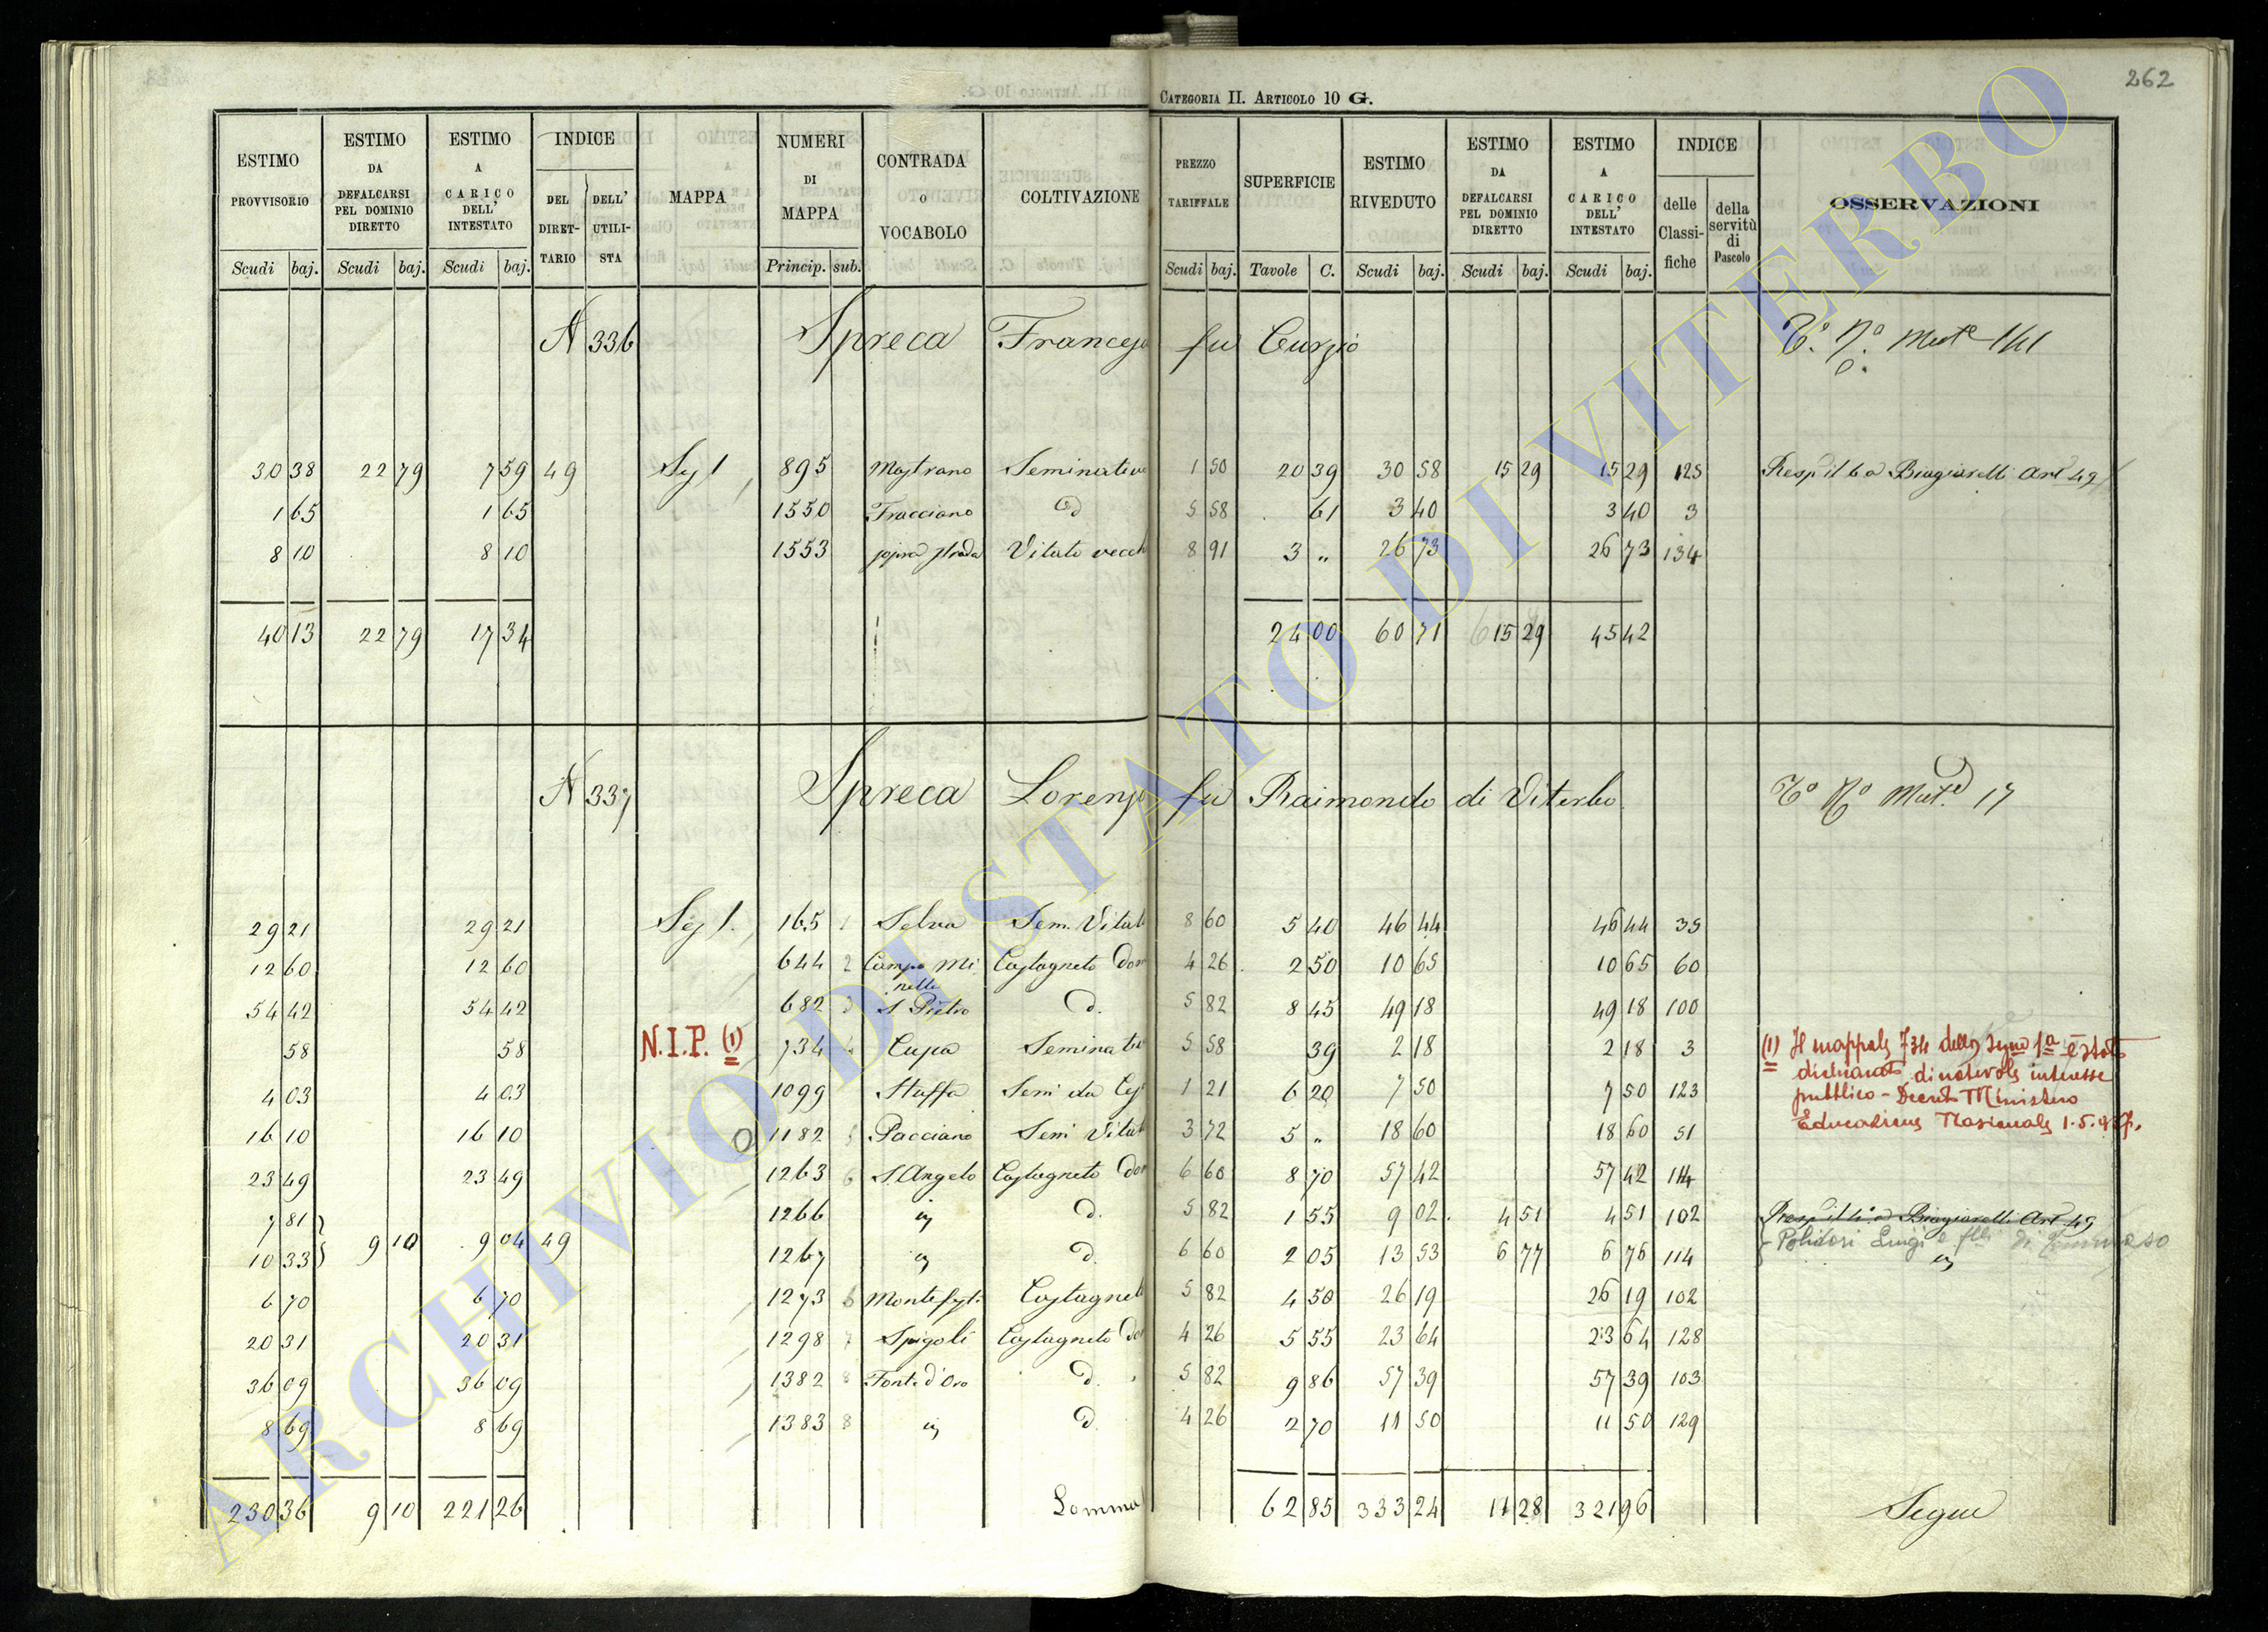 262
CATEGORIA II. ARTICOLO 10 G.
ESTIMO PROVVISORIO | ESTIMO DA DEFALCARSI PEL DOMINIO DIRETTO | ESTIMO A CARICO DELL' INTESTATO | INDICE DEL DIRETTARIO | DELL' UTILISTA | MAPPA | NUMERI DI MAPPA | CONTRADA O VOCABOLO | COLTIVAZIONE | PREZZO TARIFFALE | SUPERFICIE | ESTIMO RIVEDUTO | ESTIMO DA DEFALCARSI PEL DOMINIO DIRETTO | ESTIMO A CARICO DELL' INTESTATO | INDICE delle Classifiche | della servitù di Pascolo | OSSERVAZIONI
Scudi baj. | Scudi baj. | Scudi baj. | Princip. sub. | Scudi baj. | Tavole C. | Scudi baj. | Scudi baj. | Scudi baj.
N 336 Spreca Francesco fu Curzio
30 38 22 79 7 59 49 Sez 1 895 Mastrano Seminativo 1 50 20 39 30 58 15 29 15 29 125 Biagiarelli Art 49
1 65 1 65 1550 Fracciano d 5 58 61 3 40 3 40 3
8 10 8 10 1553 sopra strada Vitato vecch 8 91 3 „ 26 73 26 73 134
40 13 22 79 17 34 24 00 60 71 15 29 45 42
N 337 Spreca Lorenzo fu Raimondo di Viterbo 17
29 21 29 21 Sez 1. 165 1 Selva Sem. Vitat 8 60 5 40 46 44 46 44 35
12 60 12 60 644 2 Campo Minelli Castagneto Dom 4 26 2 50 10 65 10 65 60
54 42 54 42 682 3 S. Pietro d. 5 82 8 45 49 18 49 18 100
58 58 N.I.P. (1) 734 4 Cupa Seminativ 5 58 39 2 18 2 18 3 (1) Il mappale 734 della sezne 1a è stato
dichiarato di notevole interesse
4 03 4 03 1099 Staffa Sem 1 21 6 20 7 50 7 50 123 pubblico - Decreto Ministero
16 10 16 10 1182 5 Pacciano Sem Vitat 3 72 5 „ 18 60 18 60 51 Educazione Nazionale
23 49 23 49 1263 6 S. Angelo Castagneto Dom 6 60 8 70 57 42 57 42 114
7 81 9 10 9 04 49 1266 d. 5 82 1 55 9 02 4 51 4 51 102 Biagiarelli Art 49
Polidori Luigi e flli di Tommaso
10 33 1267 d. 6 60 2 05 13 53 6 77 6 76 114
6 70 6 70 1273 6 Castagneto 5 82 4 50 26 19 26 19 102
20 31 20 31 1298 7 Spigoli Castagneto Dom 4 26 5 55 23 64 23 64 128
36 09 36 09 1382 8 Font. d'Oro d. 5 82 9 86 57 39 57 39 103
8 69 8 69 1383 8 d. 4 26 2 70 11 50 11 50 129
230 36 9 10 221 26 Somma 62 85 333 24 11 28 321 96 Segue
ARCHIVIO DI STATO DI VITERBO